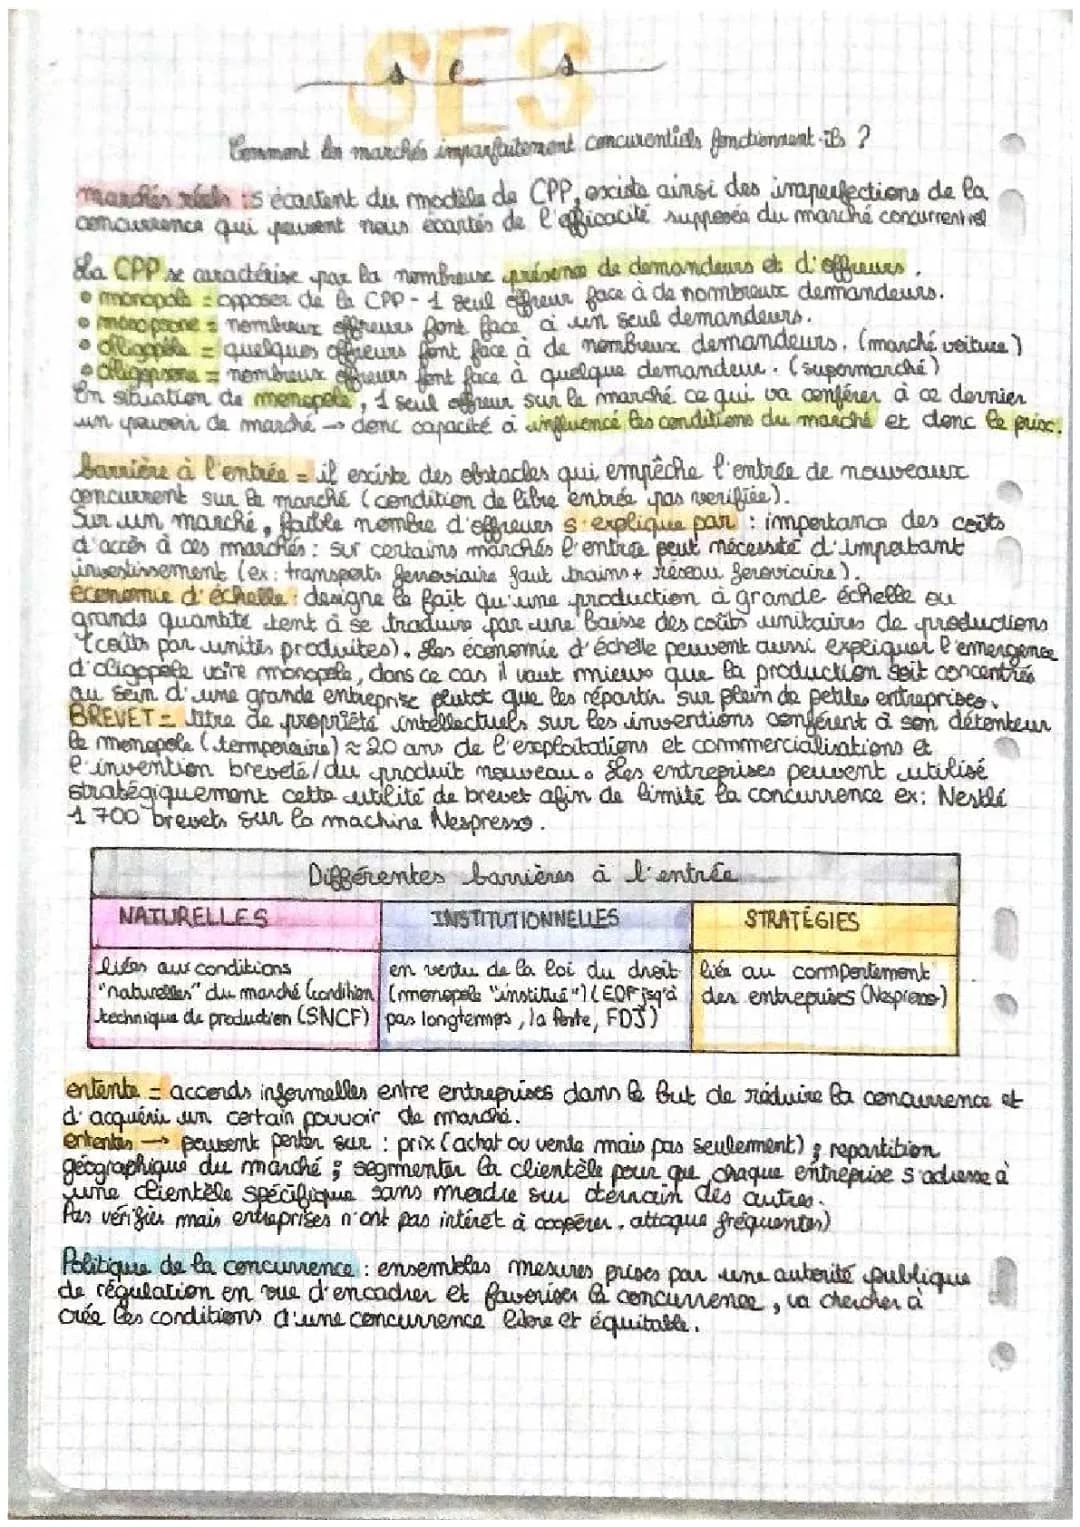 SES
ses
Comment les marchés imparfaitement concurentiels fonctionnent-ils ?
marchés réels : s'écartent du modèle de CPP, existe ainsi des imperfections de la
concurrence qui peuvent nous écartés de l'efficacité supposée du marché concurrentiel
La CPP se caractérise par la nombreuse présence de demandeurs et d'offreurs.
• monopole = opposer de la CPP - 1 seul offreur face à de nombreux demandeurs.
• monopsone = nombreux offreurs font face à un seul demandeurs.
• oligopole = quelques offreurs font face à de nombreux demandeurs. (marché voiture)
• oligopsone = nombreux offreurs font face à quelque demandeur. (supermarché)
En situation de monopole, 1 seul offreur sur le marché ce qui va conférer à ce dernier
un pouvoir de marché → donc capacité a influencé les conditions du marché et donc le prix.
barrière à l'entrée = il existe des obstacles qui empêche l'entrée de nouveaux
concurrent sur le marché (condition de libre entrée pas verifiée).
Sur un marché, faible nombre d'offreurs s'explique par : importance des coûts
d'accès à ces marchés : sur certains marchés l'entrée peut nécessité d'important
investissement (ex: transports ferroviaire faut trains + réseau feroviaire).
économie d'échelle : designe le fait qu'une production à grande échelle ou
grande quantité tent à se traduire par une baisse des coûts unitaires de productions
(coûts par unités produites). Les économie d'échelle peuvent aussi expliquer l'emergence
d'oligopole voire monopole, dans ce cas il vaut mieux que la production soit concentrés
au sein d'une grande entreprise plutot que les répartir sur plein de petites entreprises.
BREVET = titre de propriété intellectuels sur les inventions conférent à son détenteur
le monopole (temporaire) ≈ 20 ans de l'exploitations et commercialisations et
l'invention breveté/du produit nouveau. Les entreprises peuvent utilisé
stratégiquement cette utilité de brevet afin de limité la concurrence ex: Nestlé
1 700 brevets sur la machine Nespresso.
Différentes barrières à l'entrée
NATURELLES INSTITUTIONNELLES STRATÉGIES
liées aux conditions en vertu de la loi du droit liés au comportement
"naturelles" du marché (condition (monopole "institué") (EDF jsq'à des entreprises (Nespresso)
technique de production (SNCF) pas longtemps, la poste, FDJ)
entente = accords informelles entre entreprises dans le but de réduire la concurrence et
d'acquérir un certain pouvoir de marché.
ententes → peuvent porter sur : prix (achat ou vente mais pas seulement) ; repartition
géographique du marché ; segmenter la clientèle pour que chaque entreprise s'adresse à
une clientèle spécifique sans mordre sur terrain des autres.
Pas vérifier mais entreprises n'ont pas intéret à coopérer, attaque fréquentes)
Politique de la concurrence : ensembles mesures prises par une autorité publique
de régulation en vue d'encadrer et favoriser la concurrence, va chercher à
crée les conditions d'une concurrence libre et équitable.